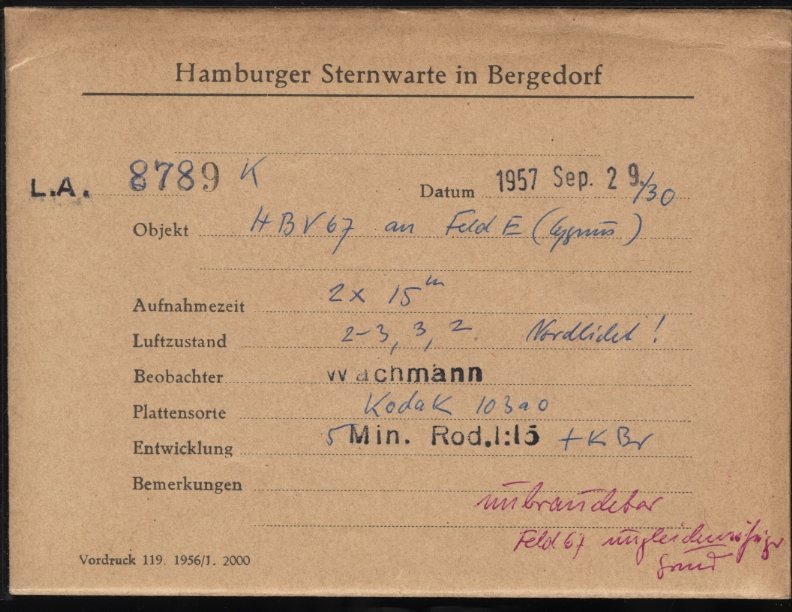 Hamburger Sternwarte in Bergedorf
L.A. 8789 K
Datum 1957 Sep. 29./30
Objekt HBV67 an Feld E (Cygnus)
Aufnahmezeit 2x 15m
Luftzustand 2-3, 3, 2. Nordlicht!
Beobachter Wachmann
Plattensorte Kodak 103a0
Entwicklung 5 Min. Rod.1:15 + KBr
Bemerkungen unbrauchbar
Feld 67 ungleichmäßiger
Grund
Vordruck 119. 1956/1. 2000